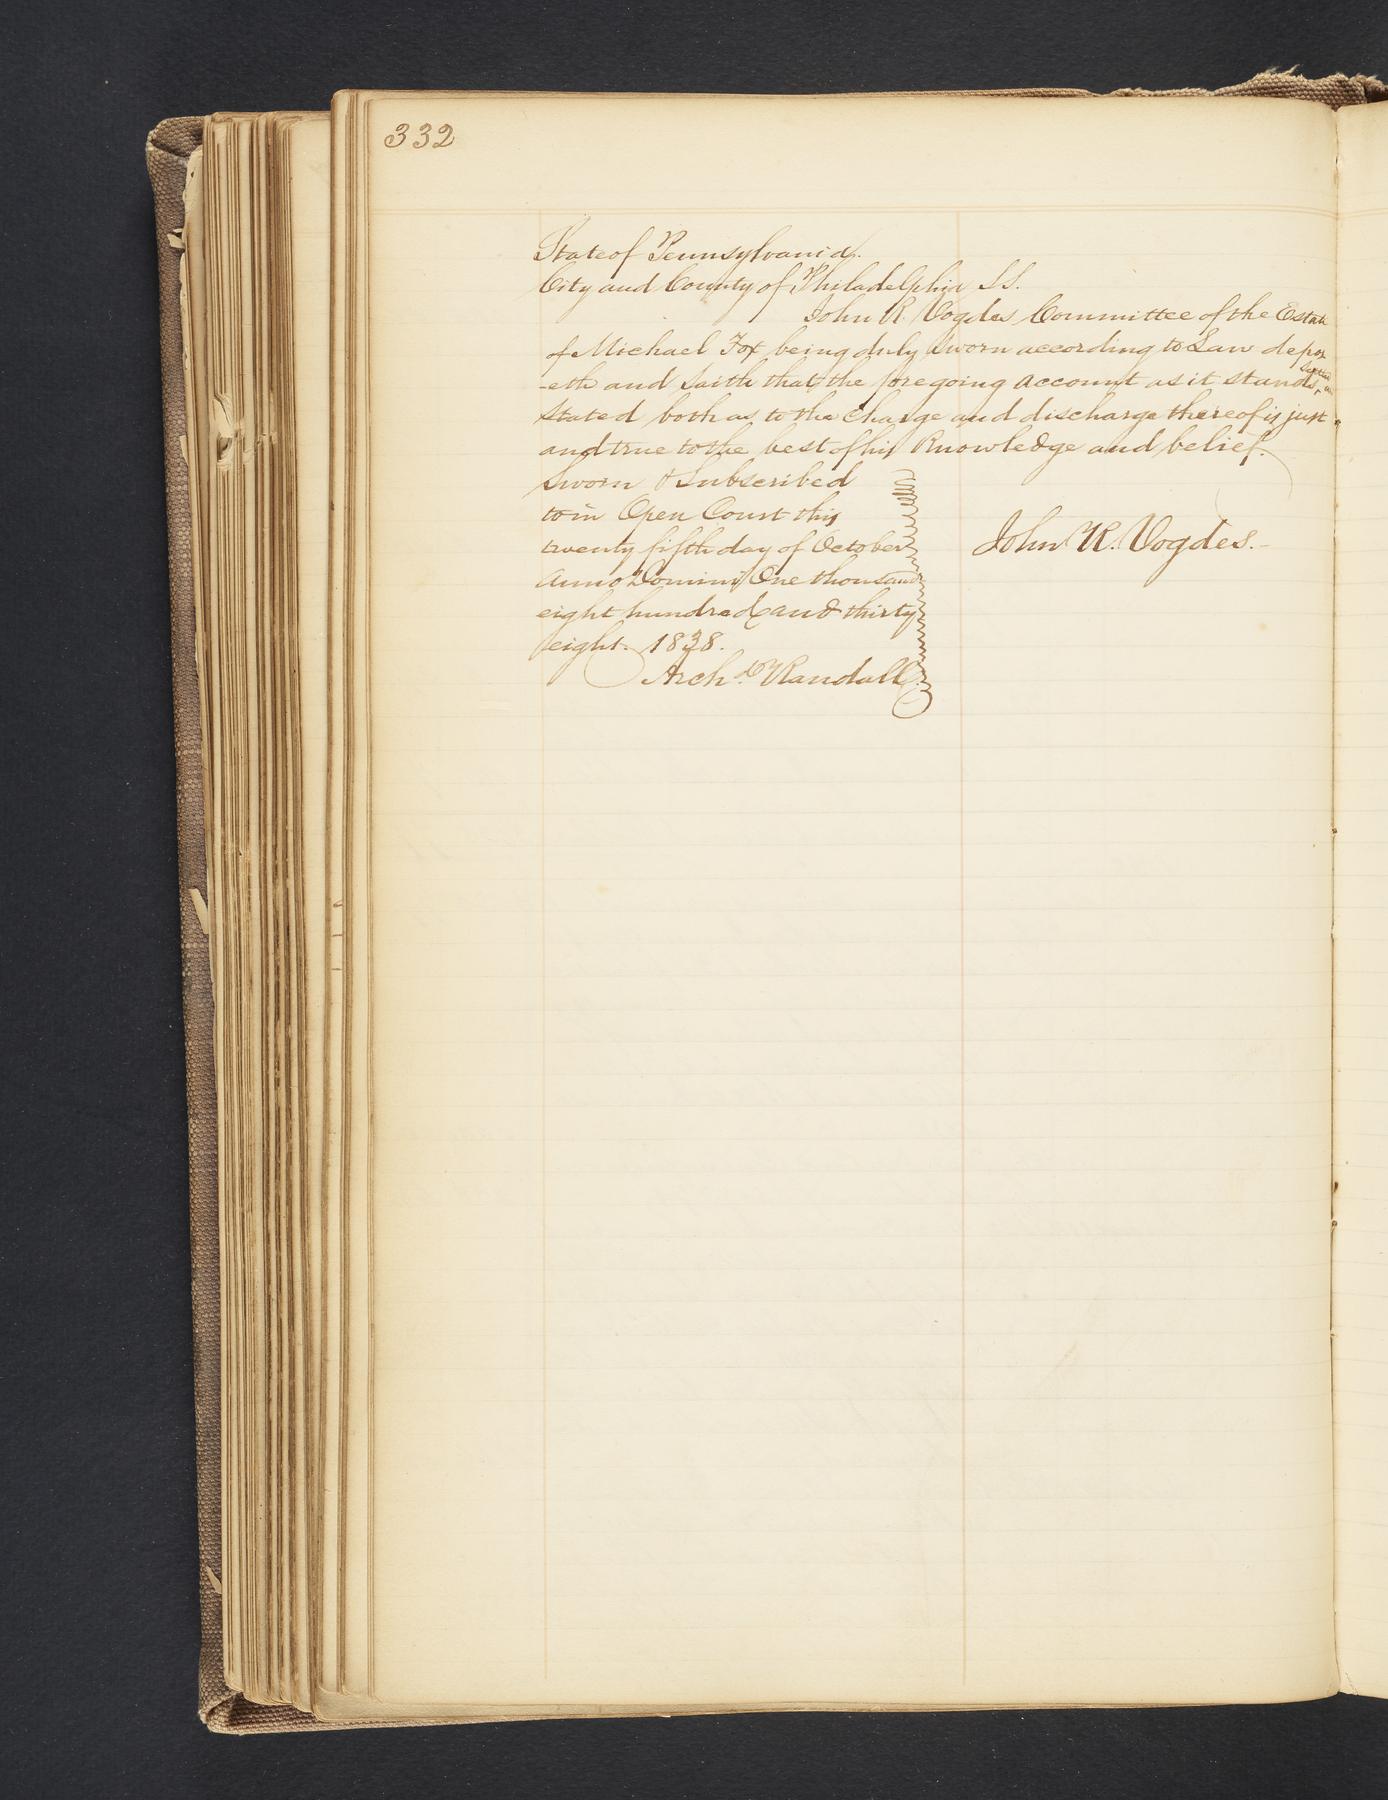 332
State of Pennsylvania
City and County of Philadelphia SS.
John R. Vogdes Committee of the Estate
of Michael Fox being duly sworn according to Law depos
-eth and saith that the foregoing account as it stands
stated both as to the charge and discharge thereof is just
and true to the best of his Knowledge and belief.
Sworn & Subscribed
to in Open Court this
twenty fifth day of October
Anno Domini One thousand
eight hundred and thirty
eight. 1838.
John R. Vogdes.
Archd. Randall